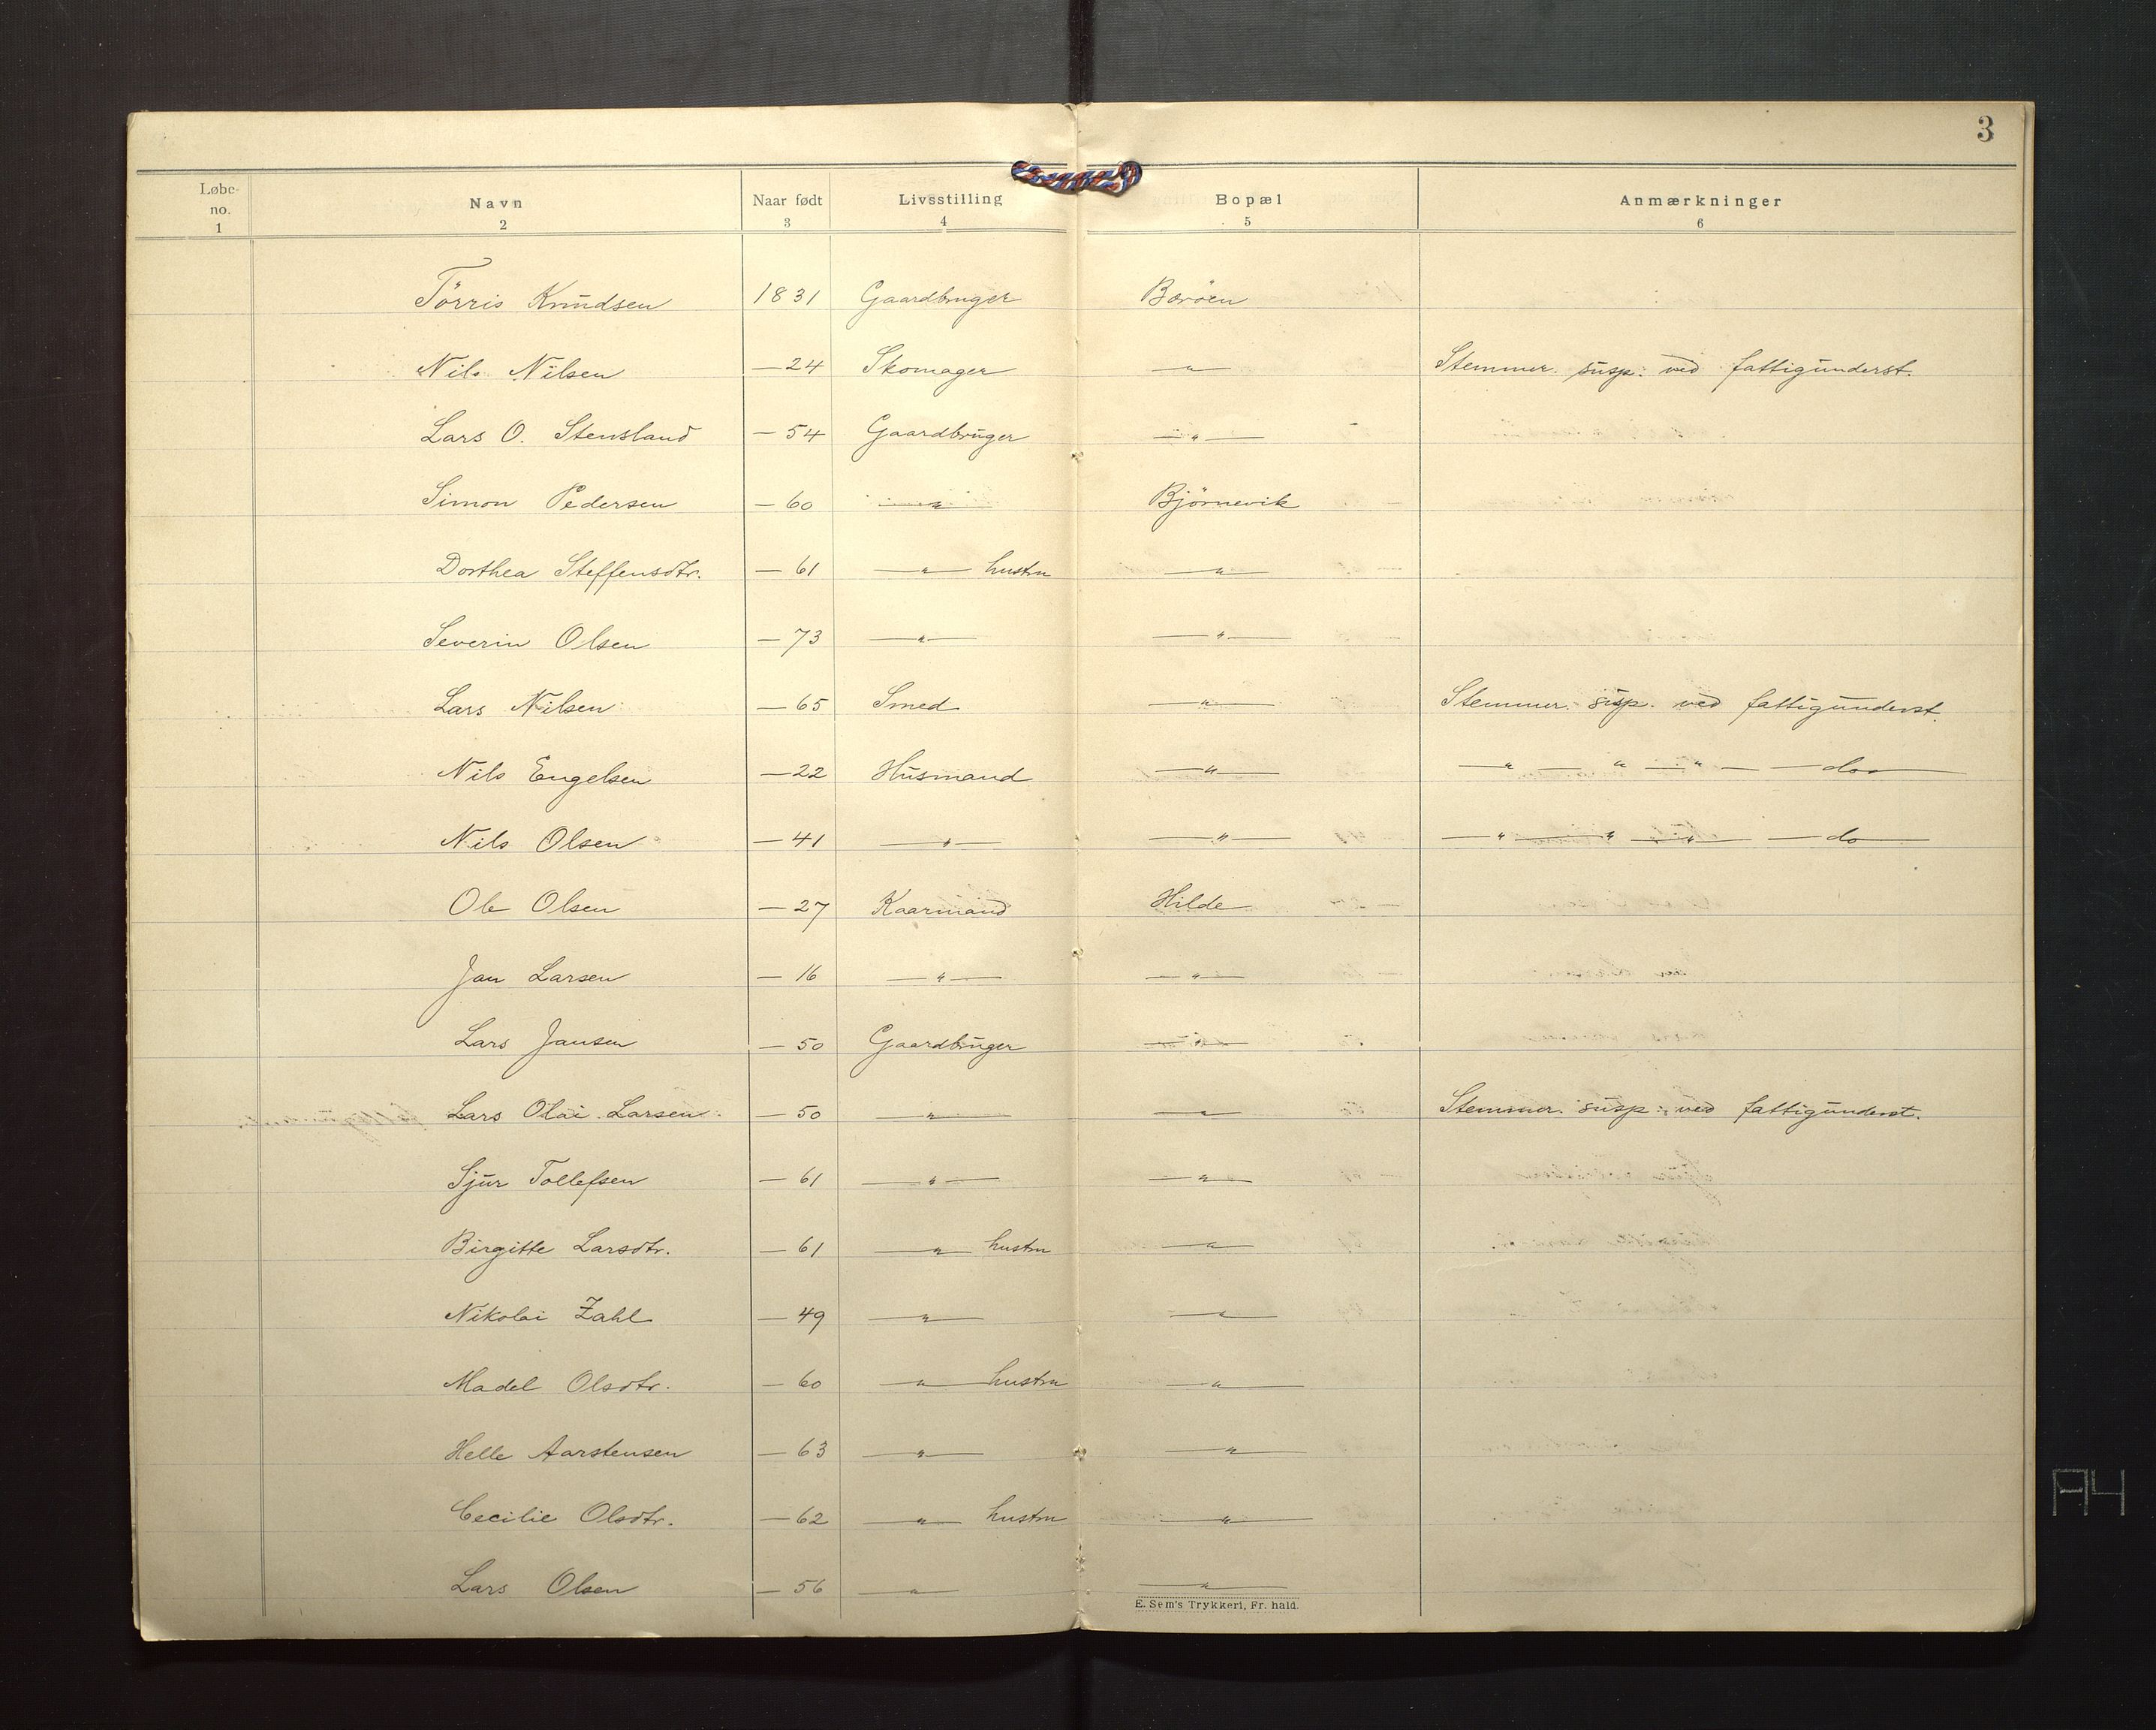 3
Løbe-no. Navn Naar født Livsstilling Bopæl Anmærkninger
1 2 3 4 5 6
Törris Knudsen 1831 Gaardbruger Boröen
Nils Nilsen — 24 Skomager —"— Stemmer. susp: ved fattigunderst.
Lars O. Stensland — 54 Gaardbruger —"—
Simon Pedersen — 60 —"— Björnevik
Dorthea Steffensdtr. — 61 —"— hustru —"—
Severin Olsen — 73 —"— —"—
Lars Nilsen — 65 Smed —"— Stemmer. susp. ved fattigunderst.
Nils Engelsen — 22 Husmand —"— —"— " —"— — do —
Nils Olsen — 41 —"— —"— —"— " —"— — do —
Ole Olsen — 27 Kaarmand Hilde
Jan Larsen — 16 —"— —"—
Lars Jansen — 50 Gaardbruger —"—
Lars Olai Larsen — 50 —"— —"— Stemmer. susp: ved fattigunderst.
Sjur Tollefsen — 61 —"— —"—
Birgitte Larsdtr. — 61 —"— hustru —"—
Nikolai Zahl — 49 —"— —"—
Madel Olsdtr. — 60 —"— hustru —"—
Helle Aarstensen — 63 —"— —"—
Cecilie Olsdtr. — 62 —"— hustru —"—
Lars Olsen — 56 —"— —"—
E. Sem's Trykkeri, Fr. hald.
A4